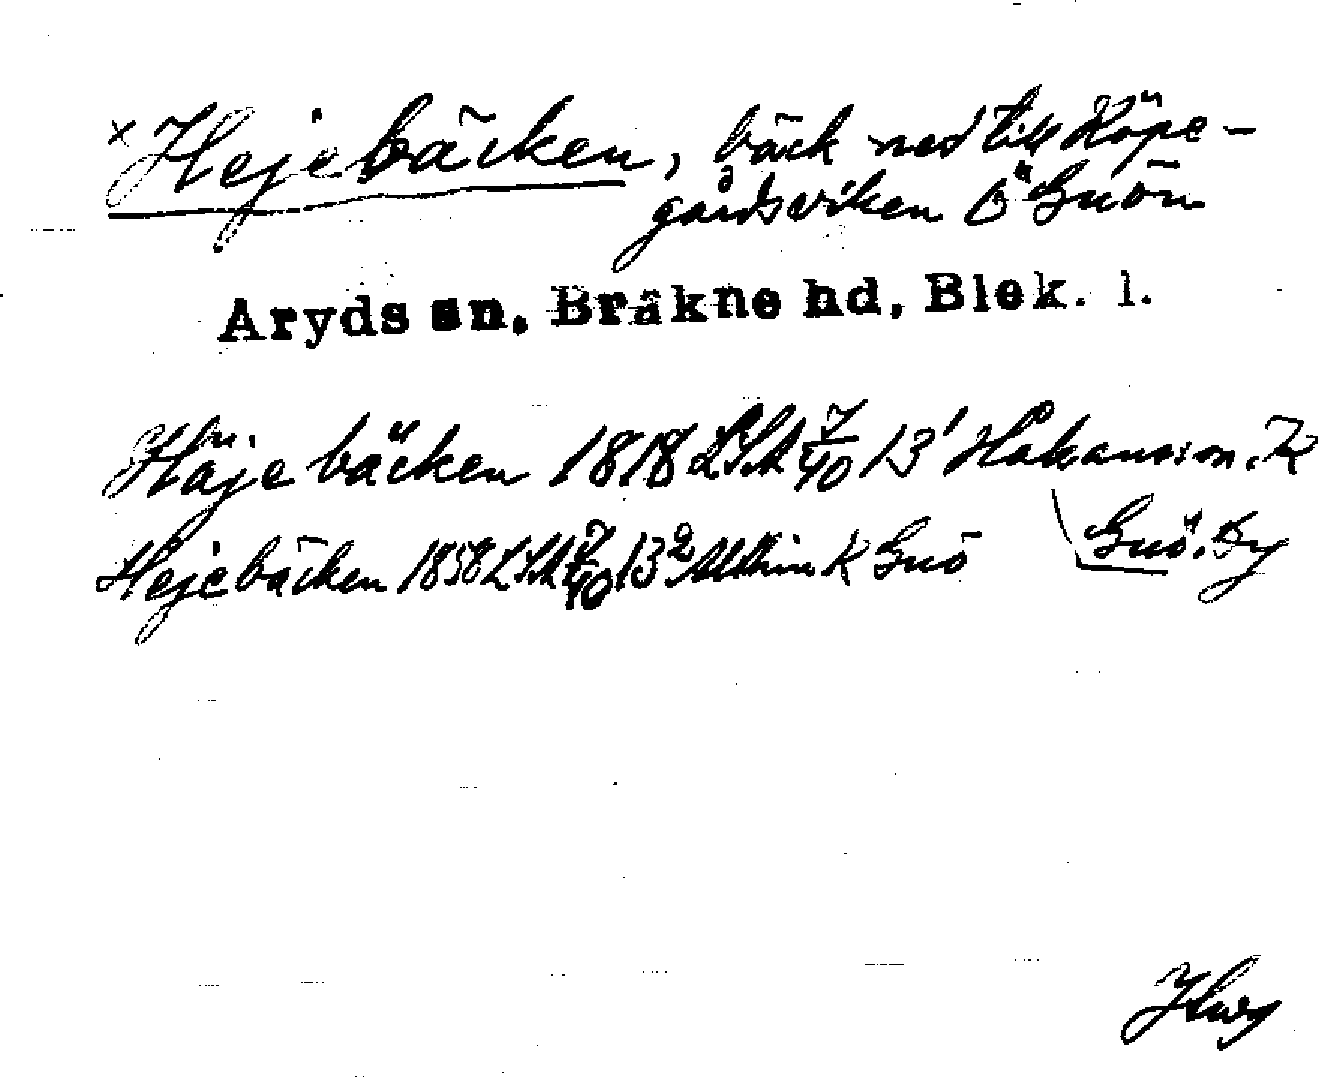 × Hejebäcken, bäck ned till Köpe-
gårdsviken Ö Guön
Aryds sn, Bräkne hd, Blek. l.
Häjebäcken 1818 LSA 7/40 13¹ Håkansson. K
Guö. Dy
Hejebäcken 1858 LSA 7/40 13² K Guö